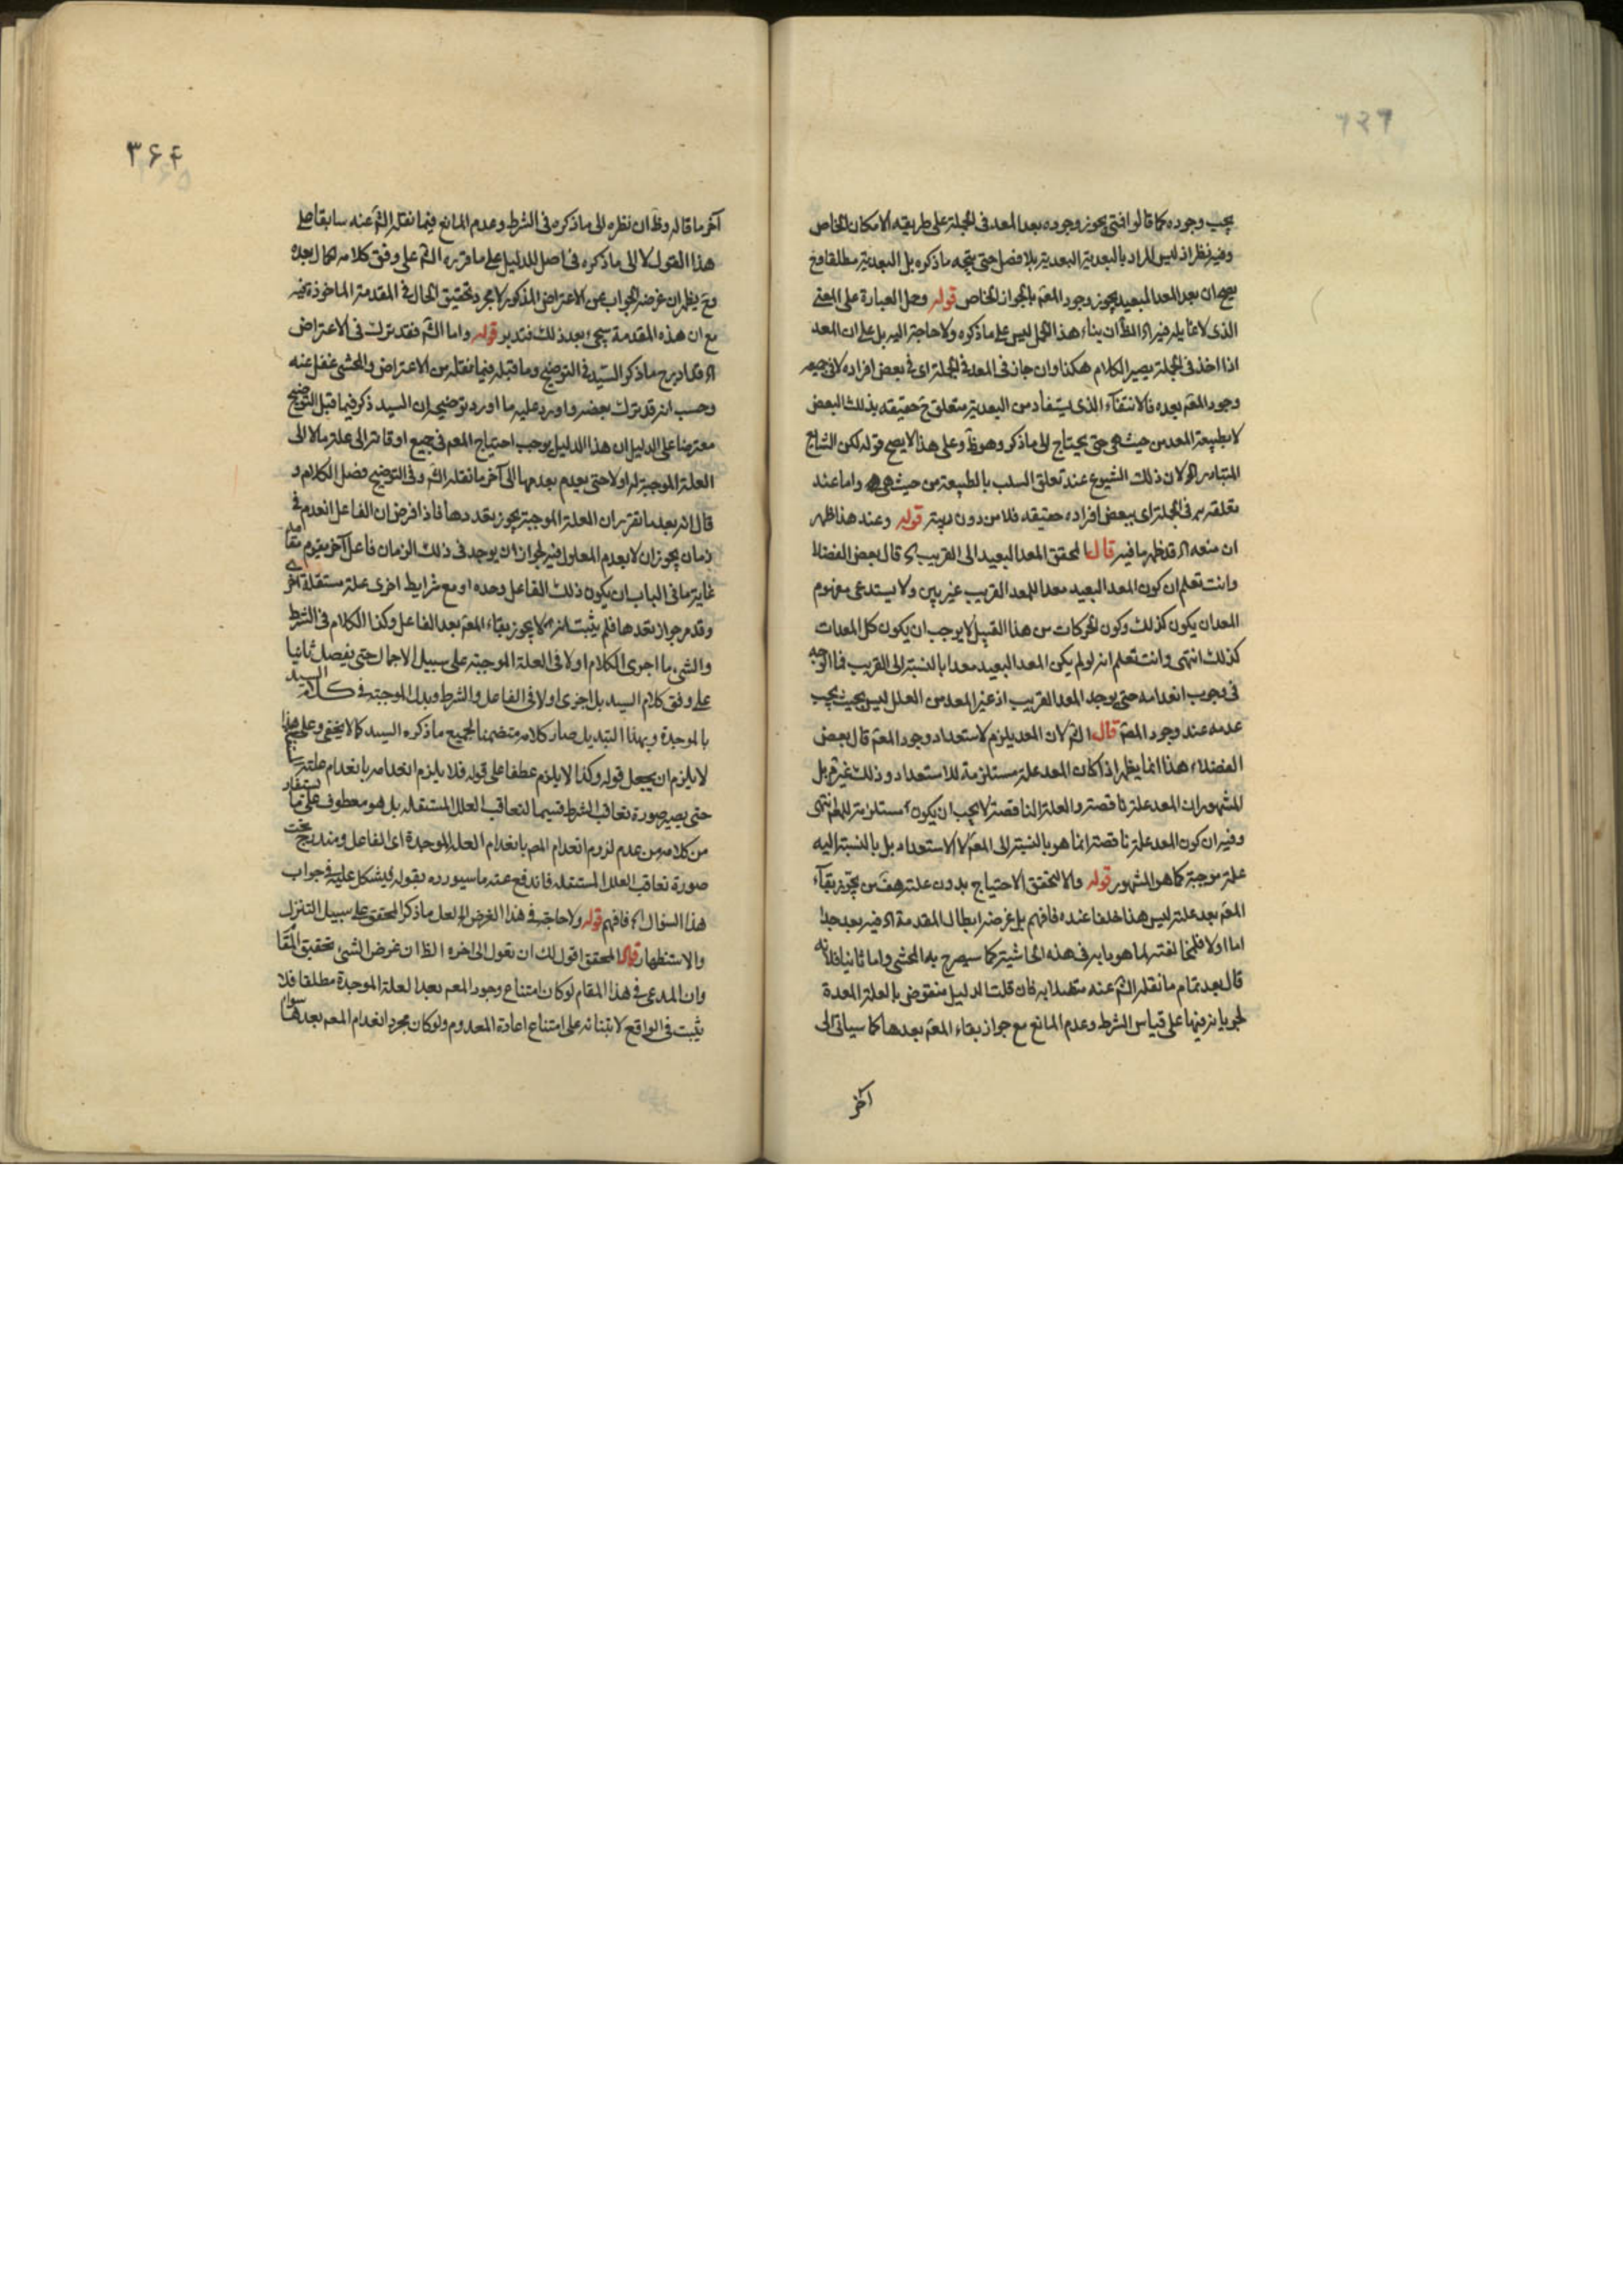 يجب وجوده كما قالوا فمتى يجوز وجوده بعد المعد فى الجملة على طريقة الامكان الخاص
وفيه نظر اذ ليس المراد بالبعدية البعدية بلا فصل حتى يتجه ما ذكره بل البعدية مطلقا ومح
يصح ان بعد المعد البعيد يجوز وجود المعم بالجواز الخاص قوله وحمل العبارة على المعنى
الذى لا غايله فيه اه الظ ان بناء هذا الحمل ليس على ما ذكره ولا حاجة اليه بل على ان المعد
اذا اخذ فى الجملة يصير الكلام هكذا وان جاز فى المعد فى الجملة اى فى بعض افراده لا فى جميعه
وجود المعم بعده فالانتفاء الذى يستفاد من البعدية متعلق ح حقيقة بذلك البعض
لا بطبيعة المعد من حيث هى حتى يحتاج الى ما ذكر وهو ظ وعلى هذا لا يصح قوله لكن الشايع
المتبادر اه لان ذلك الشيوع عند تعلق السلب بالطبيعة من حيث هى هى واما عند
تعلقه به فى الجملة اى ببعض افراده حقيقة فلا من دون ريبة قوله وعند هذا ظهر
ان منعه اه قد ظهر ما فيه قال لتحقق المعد البعيد الى القريب اه قال بعض الفضلا
وانت تعلم ان كون المعد البعيد معدا للمعد القريب غير بين ولا يستدعى مفهوم
المعد ان يكون كذلك وكون الحركات من هذا القبيل لا يوجب ان يكون كل المعدات
كذلك انتهى وانت تعلم انه لو لم يكن المعد البعيد معدا بالنسبة الى القريب فما الوجه
فى وجوب انعدامه حتى يوجد المعد القريب اذ غير المعد من العلل ليس بحيث يجب
عدمه عند وجود المعم قال الشم لان المعد يلزم لاستعداد وجود المعم قال بعض
الفضلاء هذا انما يظهر اذا كان المعد علة مستلزمة للاستعداد وذلك غير م بل
المشهور ان المعد علة ناقصة والعلة الناقصة لا يجب ان يكون مستلزمة للمعم انتهى
وفيه ان كون المعد علة ناقصة انما هو بالنسبة الى المعم لا الاستعداد بل بالنسبة اليه
علة موجبة كما هو المشهور قوله والا لتحقق الاحتياج بدون علته هف من يجوز بقاء
المعم بعد علته ليس هذا خلفا عنده فافهم بل غرضه ابطال المقدمة اه فيه بعد جدا
اما اولا فلمخالفته لما هو بابه فى هذه الحاشية كما سيصرح به المحشى واما ثانيا فلانه
قال بعد تمام ما نقله الشم عنه متصلا به فان قلت الدليل منقوض بالعلة المعدة
لجريانه فيها على قياس الشرط وعدم المانع مع جواز بقاء المعم بعدها كما سياتى الى
آخر
٣۶۴
آخر ما قاله وظ ان نظره الى ما ذكره فى الشرط وعدم المانع فيما نقله الشم عنه سابقا على
هذا القول لا الى ما ذكره فى اصل الدليل على ما قرره الشم على وفق كلامه
وح يظهر ان غرضه الجواب عن الاعتراض المذكور لا مجرد تحقيق الحال فى المقدمة الماخوذة فيه
مع ان هذه المقدمة سيجئ بعد ذلك فتدبر قوله واما الشم فقد ترك فى الاعتراض
اه فكاد يرج ما ذكر السيد فى التوضيح وما قبله فيما نقله من الاعتراض والمحشى غفل عنه
وحسب انه قد ترك بعضه واورد عليه ما اورد توضيحه ان السيد ذكر فيما قبل التوضيح
معترضا على الدليل ان هذا الدليل يوجب احتياج المعم فى جميع اوقاته الى علة ما لا الى
العلة الموجبة له اولا حتى يعدم بعدمها الى آخر ما نقله الشم وفى التوضيح فصل الكلام و
قال انه بعد ما تقرر ان العلة الموجبة يجوز تعددها فاذا فرض ان الفاعل انعدم فى
زمان يجوز ان لا يعدم المعلول فيه لجواز ان يوجد فى ذلك الزمان فاعل آخر يقوم مقامه
غاية ما فى الباب ان يكون ذلك الفاعل وحده او مع شرايط اخرى علة مستقلة اخرى
وقد مر جواز تعددها فلم يثبت انه لا يجوز بقاء المعم بعد الفاعل وكذا الكلام فى الشرط
والشم ما اجرى الكلام اولا فى العلة الموجبة على سبيل الاجمال حتى يفصل ثانيا
على وفق كلام السيد بل اجرى اولا فى الفاعل والشرط وبدل الموجبة فى كلام السيد
بالموجدة وبهذا التبديل صار كلامه متضمنا لجميع ما ذكره السيد كما لا يخفى وعلى هذا
لا يلزم ان يجعل قوله وكذا لا يلزم عطفا على قوله فلا يلزم انعدامه بانعدام علته
حتى يصير صورة تعاقب الشرط قسيما لتعاقب العلل المستقلة بل هو معطوف على ما يستفاد
من كلامه من عدم لزوم انعدام المعم بانعدام العلة الموجدة اى الفاعل ومندرج تحت
صورة تعاقب العلل المستقلة فاندفع عنه ما سيورده بقوله فيشكل عليه فى جواب
هذا السؤال اه فافهم قوله ولا حاجة فى هذا الغرض اه لعل ما ذكر المحقق على سبيل التنزل
والاستظهار قال المحقق اقول لك ان تقول الى اخره الظ ان غرض الشى تحقيق المقام
وان المدعى فى هذا المقام لو كان امتناع وجود المعم بعد العلة الموجدة مطلقا فلا
يثبت فى الواقع لابتنائه على امتناع اعادة المعدوم ولو كان مجرد انعدام المعم بعدها سواء